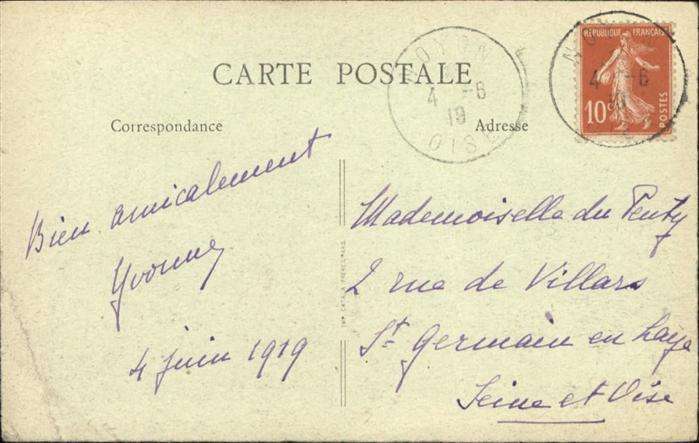 CARTE POSTALE
Correspondance
Adresse
RÉPUBLIQUE FRANÇAISE
10c
POSTES
4 -6
19
OISE
4 -6
Bien amicalement
Yvonne
4 juin 1919
Mademoiselle du Penty
2 rue de Villars
St Germain en Laye
Seine et Oise